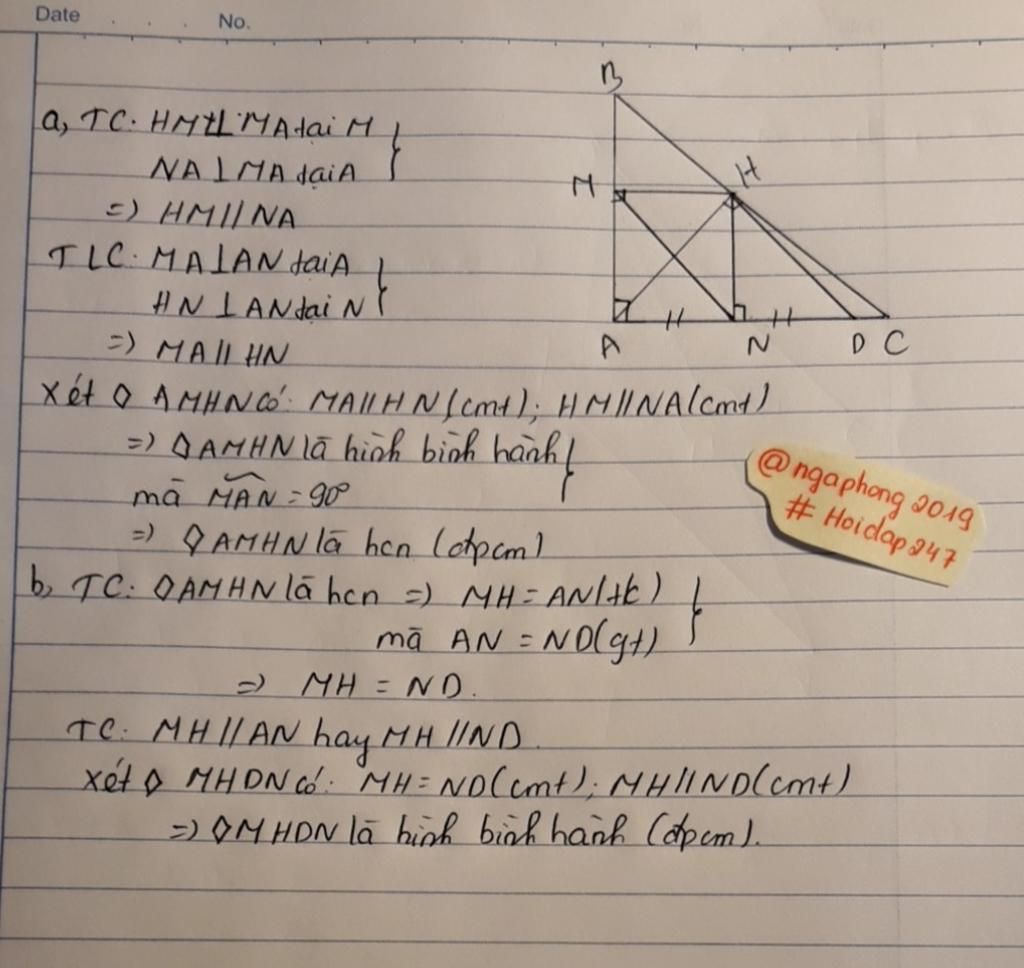 Date . . . No.
B
a, TC: HM⊥MA tại M
NA⊥MA tại A
=) HM//NA
M H
TLC: MA⊥AN tại A
HN⊥AN tại N
=) MA//HN
A N D C
Xét ◊ AMHN có: MA//HN(cmt); HM//NA(cmt)
=) ◊AMHN là hình bình hành
mà MAN = 90°
=) ◊AMHN là hcn (đpcm)
@ngaphong2019
# Hoidap247
b, TC: ◊AMHN là hcn =) MH = AN(t/c)
mà AN = ND(gt)
=) MH = ND.
TC: MH//AN hay MH//ND.
Xét ◊ MHDN có: MH = ND(cmt); MH//ND(cmt)
=) ◊MHDN là hình bình hành (đpcm).